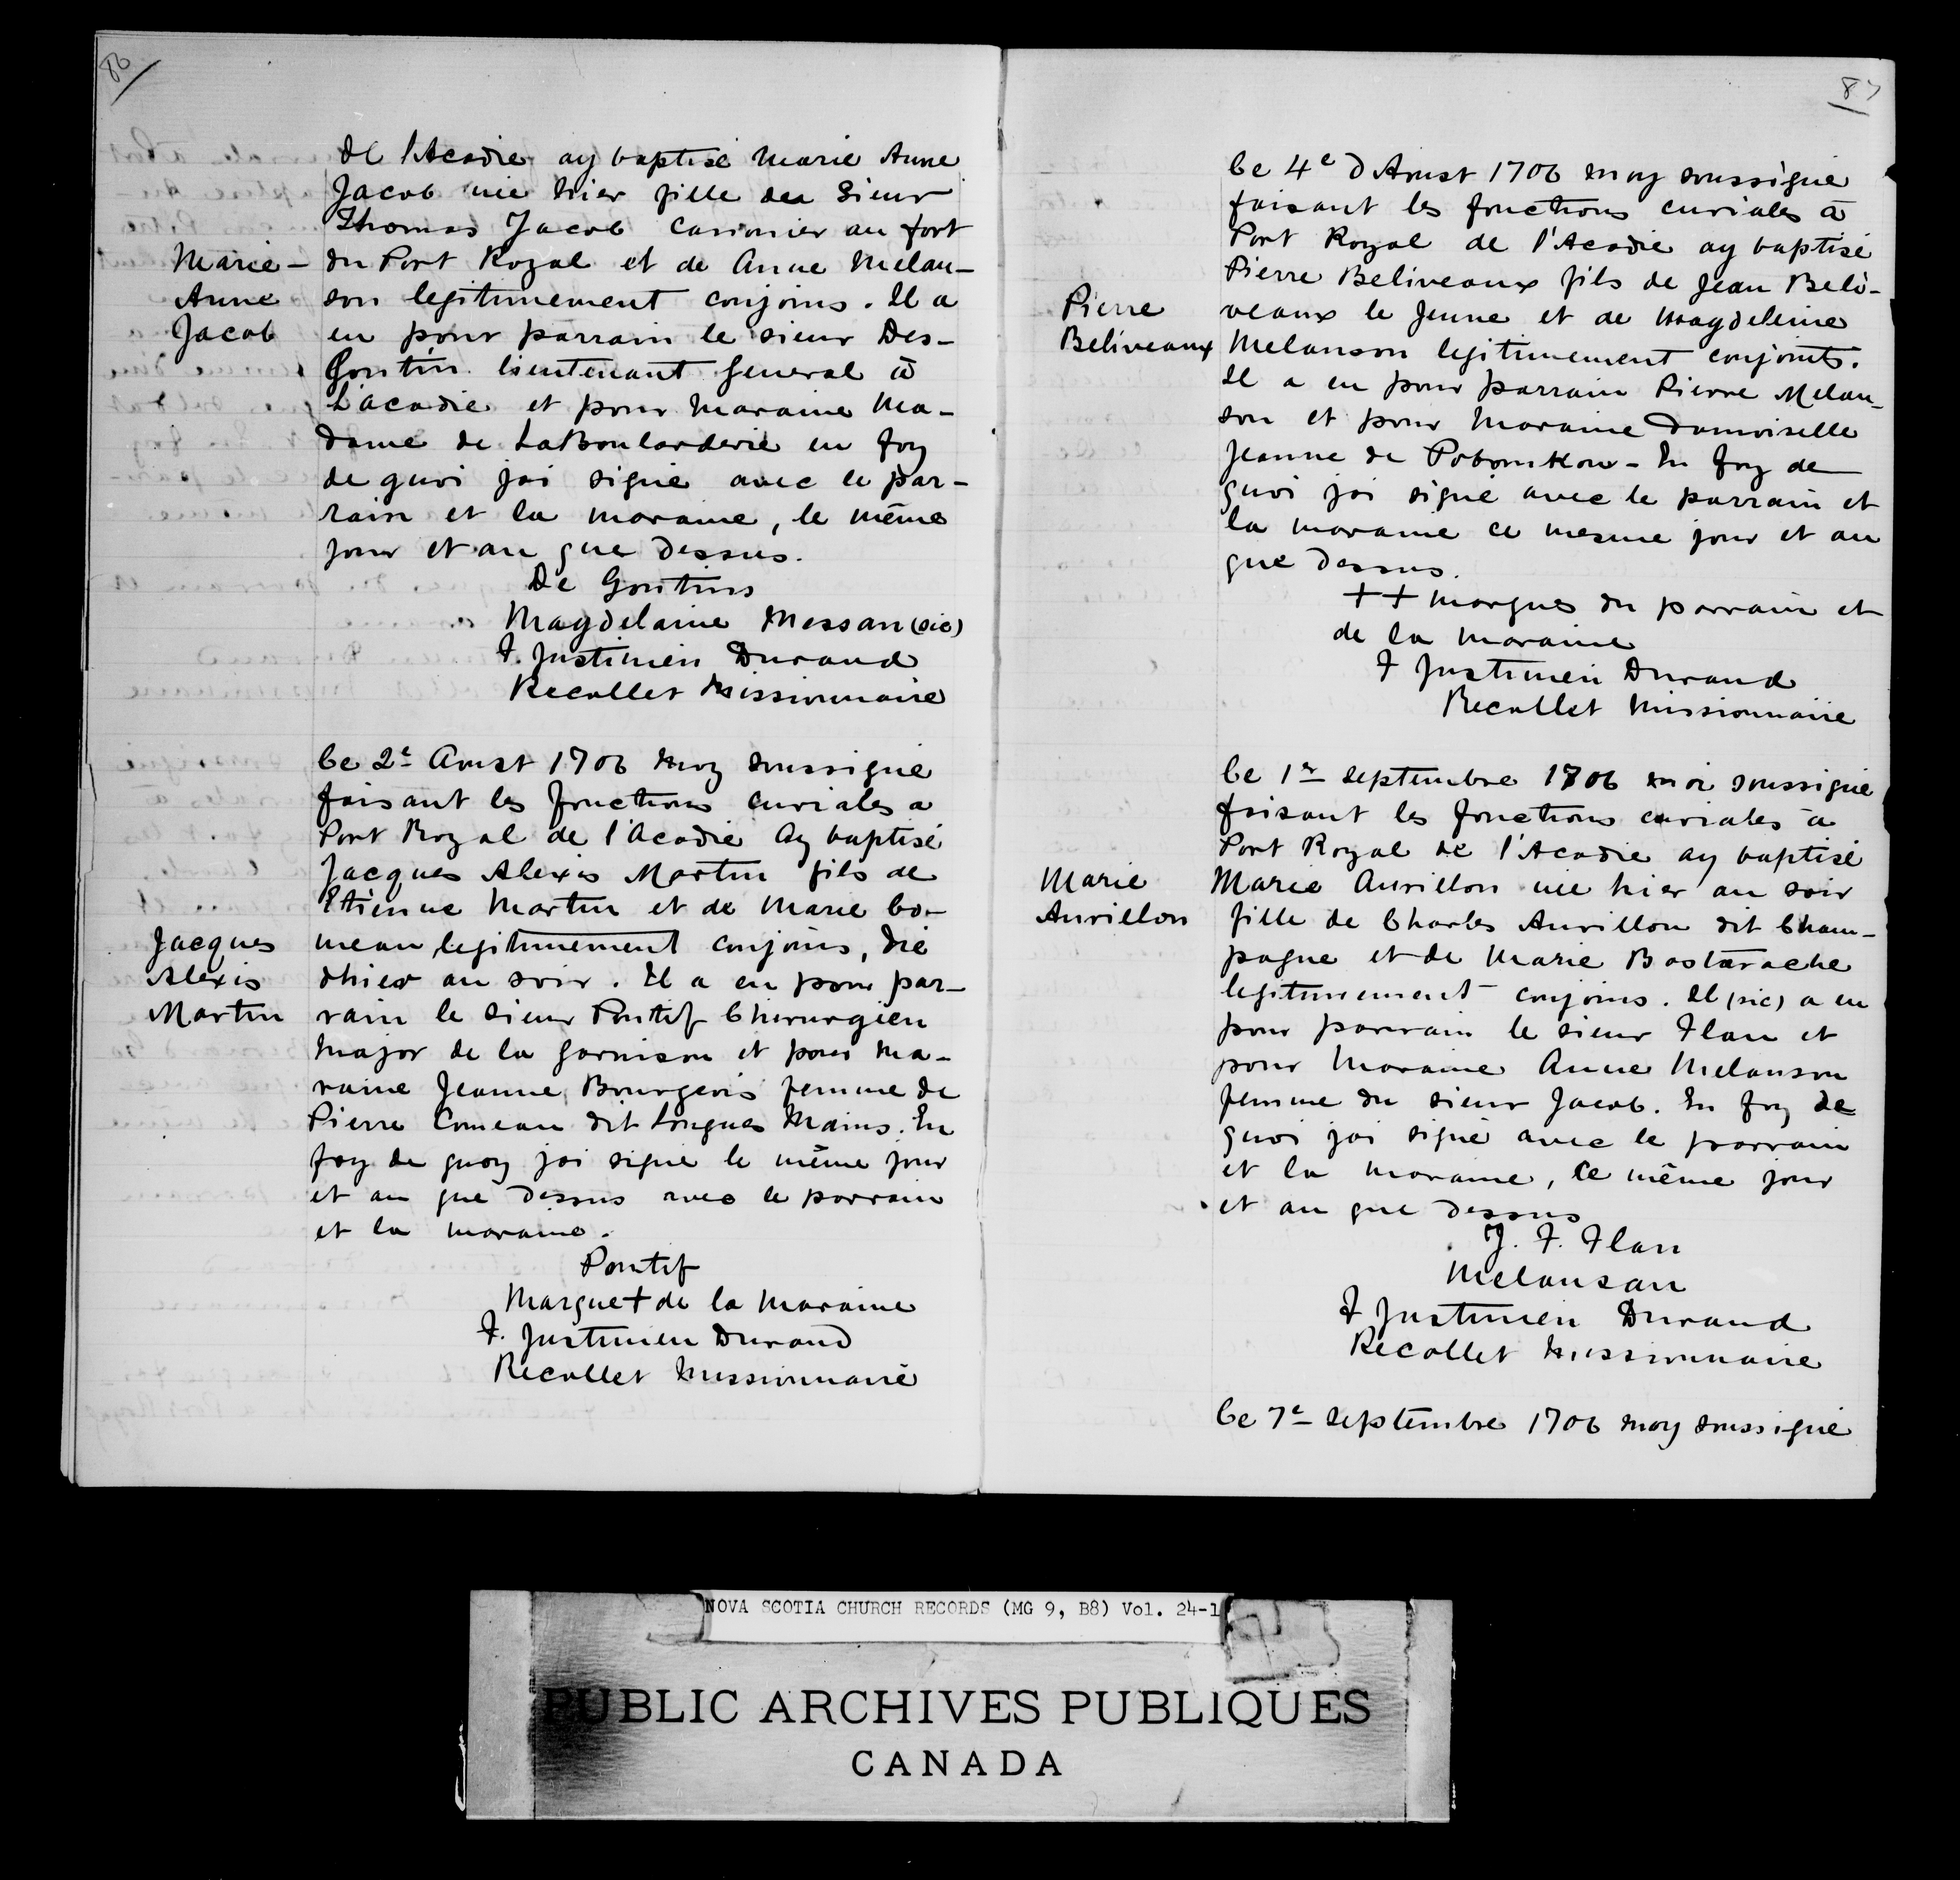 86
de l'Acadie ay baptisé Marie Anne
Jacob née hier fille du Sieur
Thomas Jacob canonier au fort
Marie- du Port Royal et de Anne Melan-
Anne son legitimement conjoins. Il a
Jacob eu pour parrain le sieur Des-
Goutin lieutenant general à
L'acadie et pour maraine Ma-
dame de LaBoularderie en foy
de quoi jai signé avec le par-
rain et la maraine, le même
jour et an que dessus.
De Goutins
Magdelaine Messan (sic)
F. Justinien Durand
Recollet Missionnaire
Le 2e Aoust 1706 moy soussigné
faisant les fonctions curiales a
Port Royal de l'Acadie Ay baptisé
Jacques Alexis Martin fils de
Etienne Martin et de Marie Co-
Jacques meau legitimement conjoins, né
Alexis d'hier au soir. Il a eu pour par-
Martin rain le sieur Pontif Chirurgien
Major de la garnison et pour Ma-
raine Jeanne Bourgeois femme de
Pierre Comeau dit Longues Mains. En
foy de quoy jai signé le même jour
et an que dessus avec le parrain
et la maraine.
Pontif
Marque + de la Maraine
F. Justinien Durand
Recollet Missionnaire
87
Le 4e d'Aoust 1706 moy soussigné
faisant les fonctions curiales à
Port Royal de l'Acadie ay baptisé
Pierre Beliveaux fils de Jean Beli-
Pierre veaux le Jeune et de Magdeleine
Beliveaux Melanson legitimement conjoints.
Il a eu pour parrain Pierre Melan-
son et pour Maraine Damoiselle
Jeanne de Pobomkou - En foy de
quoi jai signé avec le parrain et
la maraine ce mesme jour et an
que dessus.
++ marques du parrain et
de la maraine
F Justinien Durand
Recollet Missionnaire
Le 1er septembre 1706 moi soussigné
faisant les fonctions curiales à
Port Royal de l'Acadie ay baptisé
Marie Marie Aurillon née hier au soir
Aurillon fille de Charles Aurillon dit Cham-
pagne et de Marie Bastarache
legitimement conjoins. Il (sic) a eu
pour parrain le sieur Flan et
pour Maraine Anne Melanson
femme du sieur Jacob. En foy de
quoi jai signé avec le parrain
et la maraine, le même jour
et an que dessus
J. F. Flan
Melansan
F Justinien Durand
Recollet Missionnaire
Le 7e septembre 1706 moy soussigné
NOVA SCOTIA CHURCH RECORDS (MG 9, B8) Vol. 24-1
PUBLIC ARCHIVES PUBLIQUES
CANADA